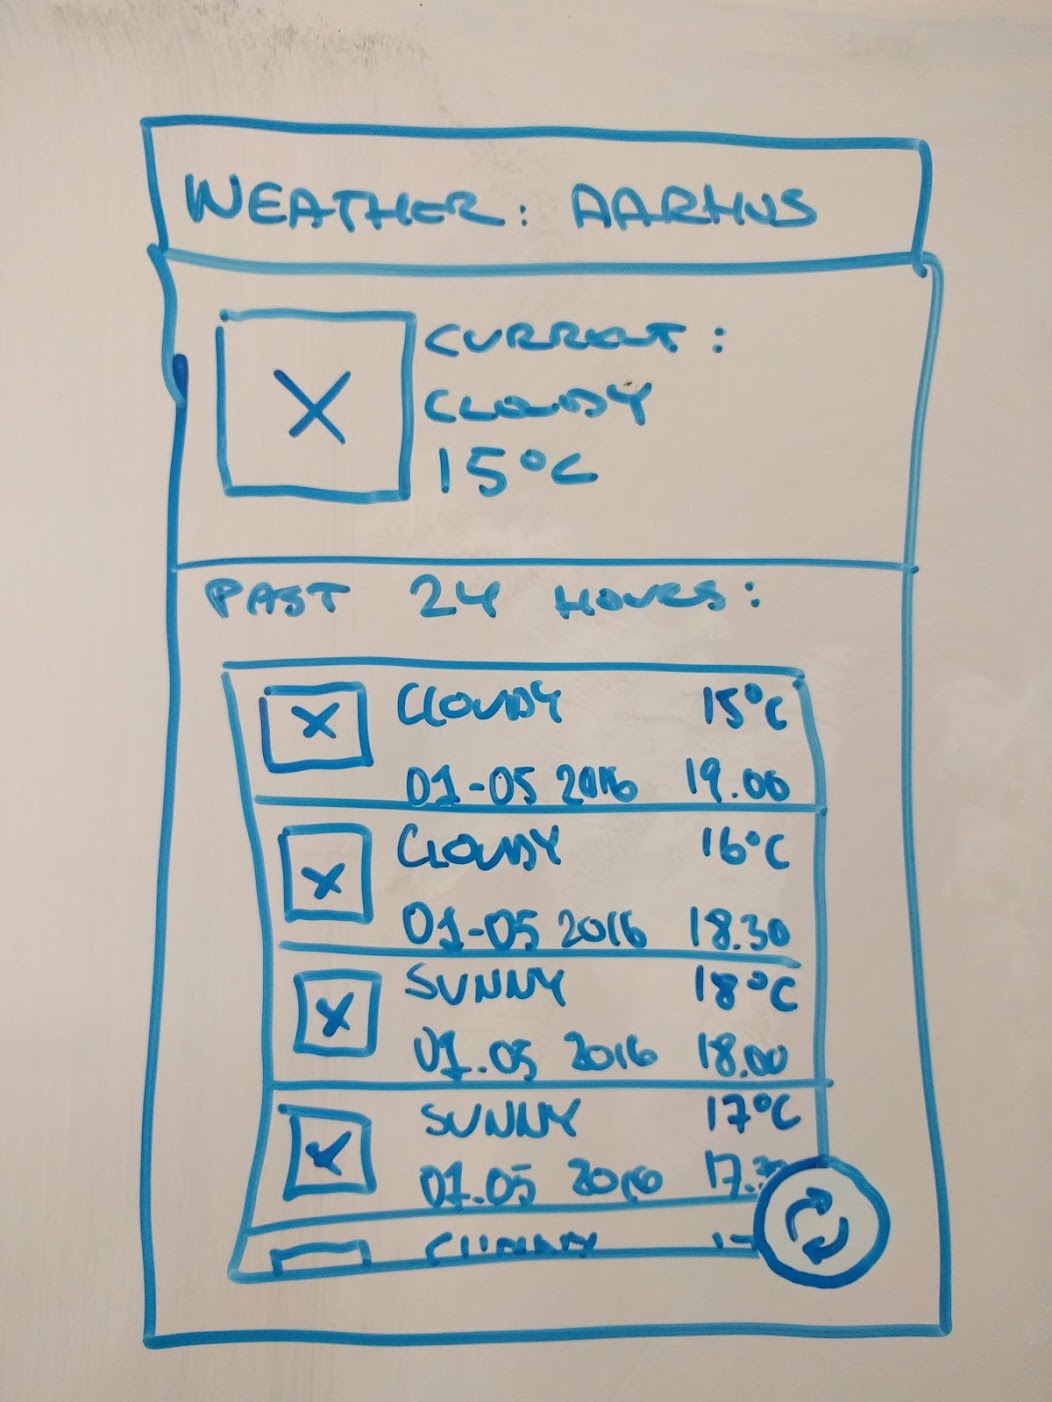 WEATHER: AARHUS
CURRENT:
CLOUDY
15°C
PAST 24 HOURS:
CLOUDY 15°C
01-05 2016 19.00
CLOUDY 16°C
01-05 2016 18.30
SUNNY 18°C
01.05 2016 18.00
SUNNY 17°C
01.05 2016